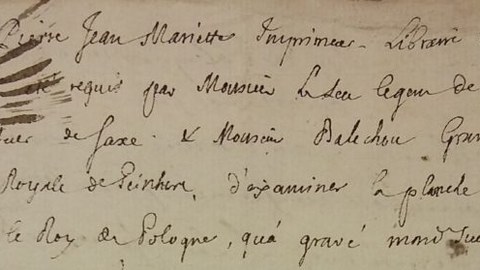 Pierre Jean Mariette Imprimeur - Libraire
été requis par Monsieur Le Leu legou de
de Saxe. & Monsieur Balechou Grav
Royale de Peinture, d'examiner la planche
le Roy de Pologne, qu'a gravé mond. Sieu